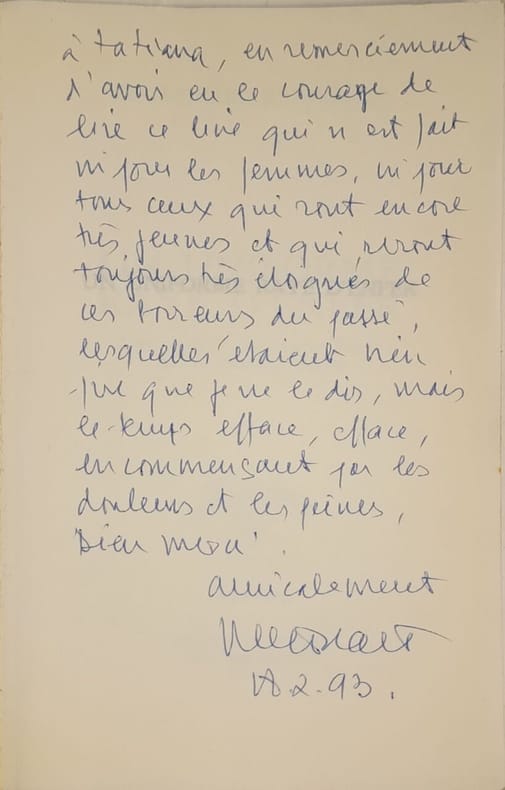 à Tatiana, en remerciement
d'avoir eu le courage de
lire ce livre qui n'est fait
ni pour les femmes, ni pour
tous ceux qui sont encore
très jeunes et qui seront
toujours très éloignés de
ces horreurs du passé,
lesquelles étaient bien
pire que je ne le dis, mais
le temps efface, efface,
en commençant par les
douleurs et les peines,
Dieu merci.
amicalement
18.2.93.